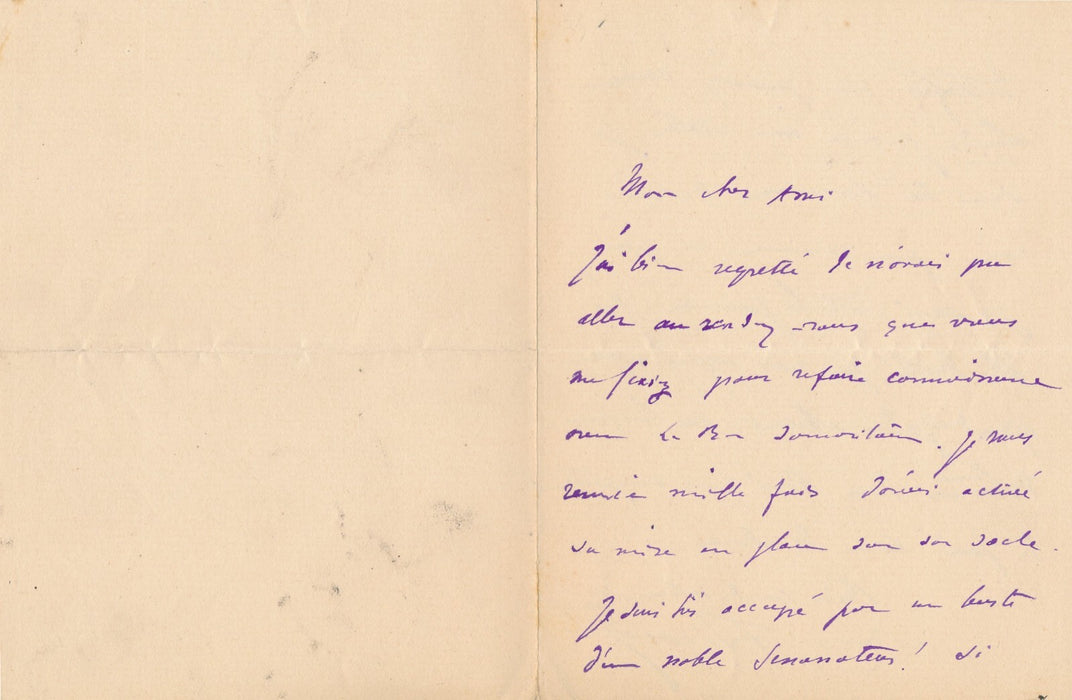 Mon cher Ami
J'ai bien regretté de n'avoir pu
aller au rendez-vous que vous
me fixiez pour refaire connaissance
avec Le Bon Samaritain. Je vous
remercie mille fois d'avoir activé
sa mise en place sur son socle.
Je suis très occupé par un buste
d'un noble ! Si